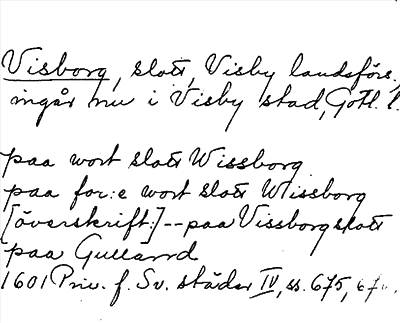 Visborg, slott, Visby landsförs.,
ingår nu i Visby stad, Gotl. l.
paa wort slott Wissborg
paa for:e wort slott Wissborg
[överskrift:]--paa Vissborg slott
paa Gulland
1601 Priv. f. Sv. städer IV, ss. 675, 676.